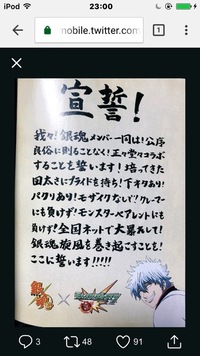 iPod
23:00
mobile.twitter.com
1
宣誓!
我々!銀魂メンバー一同は!公序
良俗に則ることなく!正々堂々コラボ
することを誓います!培ってきた
図太さにプライドを持ち!下ネタあり!
パクりあり!モザイクなし!クレーマー
にも負けず!モンスターペアレントにも
負けず!全国ネットで大暴れして!
銀魂旋風を巻き起こすことも!
ここに誓います!!!!!
銀魂
×
3
48
91